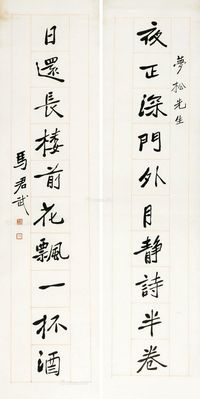 夢松先生
夜正深門外月靜詩半卷
日還長樓前花飄一杯酒
馬君武